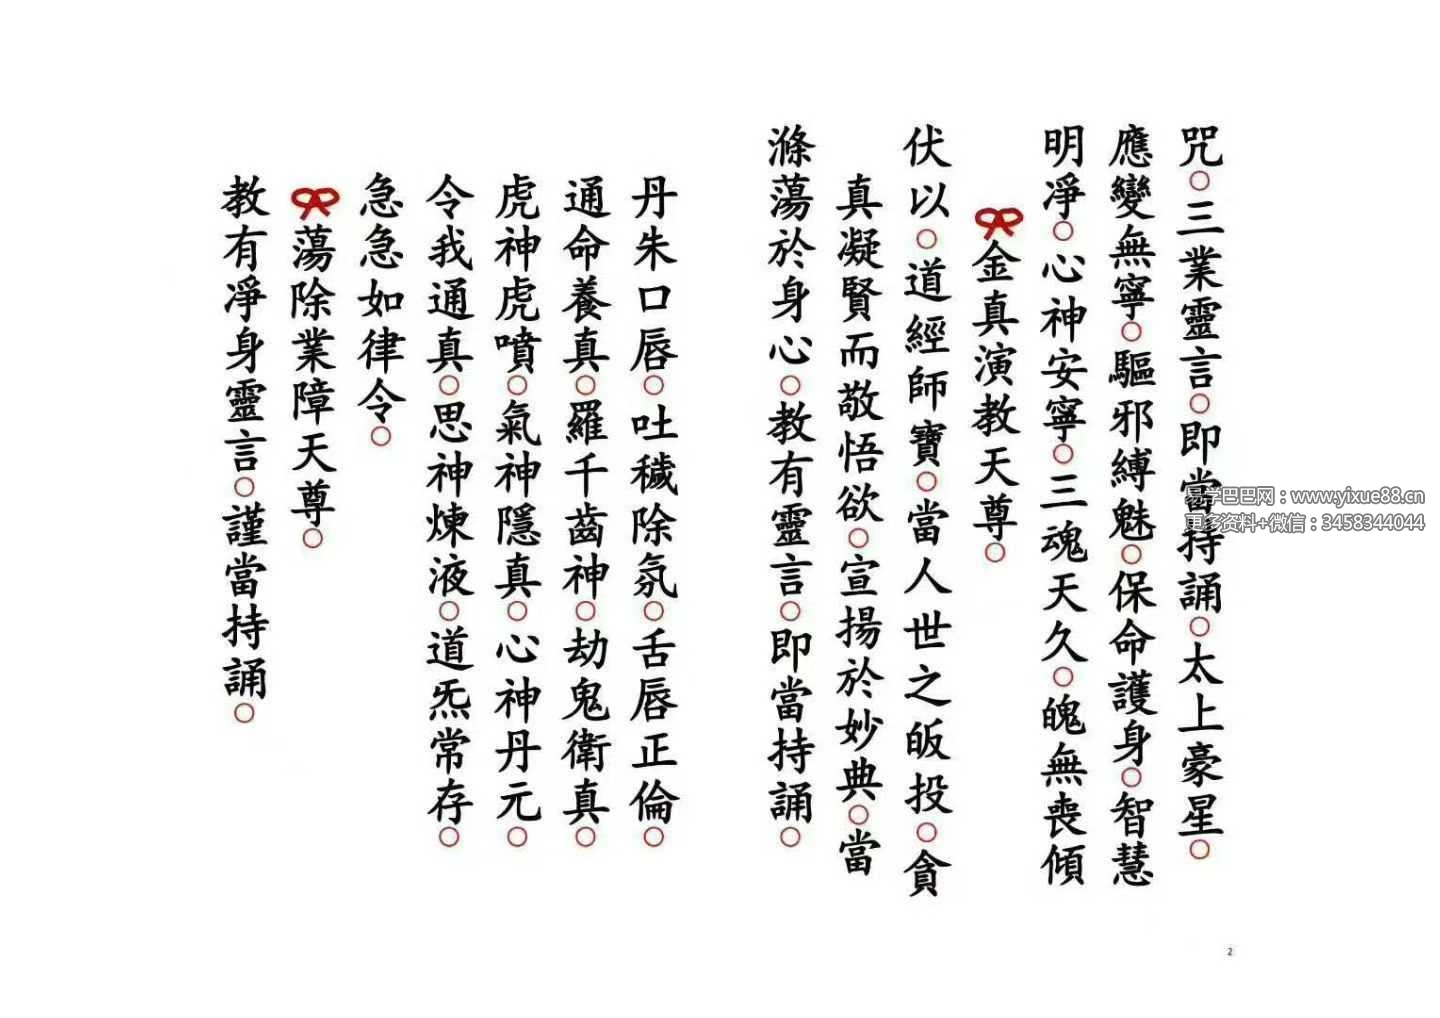 咒○三業靈言○即當持誦○太上豪星○
應變無寧○驅邪縛魅○保命護身○智慧
明凈○心神安寧○三魂天久○魄無丧傾
金真演教天尊○
伏以○道經師寶○當人世之皈投○貪
真凝賢而敬悟欲○宣揚於妙典○當
滌蕩於身心○教有靈言○即當持誦○
丹朱口唇○吐穢除氛○舌唇正倫○
通命養真○羅千齒神○劫鬼衛真○
虎神虎噴○氣神隱真○心神丹元○
令我通真○思神煉液○道炁常存○
急急如律令○
蕩除業障天尊○
教有凈身靈言○謹當持誦○
易学巴巴网：www.yixue88.cn
更多资料+微信：3458344044
2